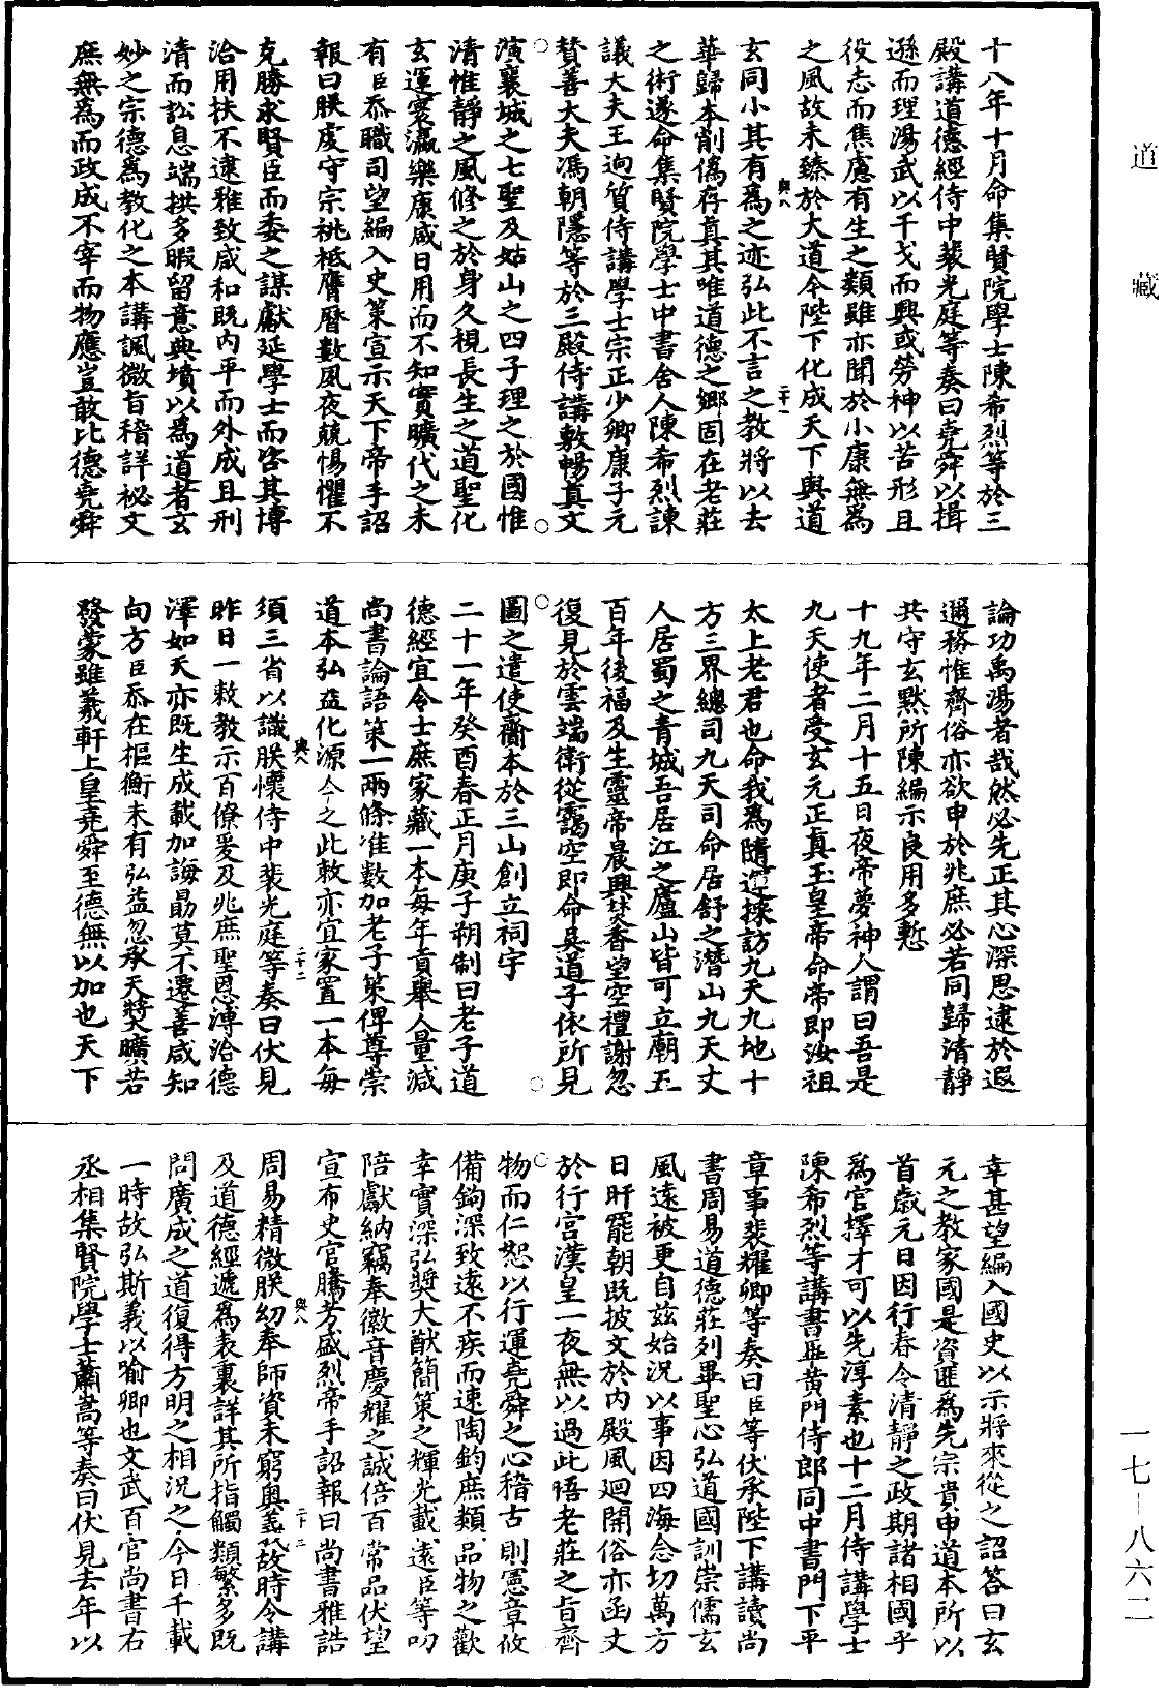 道藏
十八年十月命集賢院學士陳希烈等於三
殿講道德經侍中裴光庭等奏曰堯舜以揖
遜而理湯武以干戈而興或勞神以苦形且
役志而焦慮有生之類雖亦聞於小康無為
之風故未臻於大道今陛下化成天下與道
玄同小其有為之迹弘此不言之教將以去
與八 二十一
華歸本削偽存真其唯道德之鄉固在老莊
之術遂命集賢院學士中書舍人陳希烈諫
議大夫王迥質侍講學士宗正少卿康子元
贊善大夫馮朝隱等於三殿侍講敷暢真文
演襄城之七聖及姑山之四子理之於國惟
清惟靜之風修之於身久視長生之道聖化
玄運寰瀛樂康咸日用而不知實曠代之未
有臣忝職司望編入史策宣示天下帝手詔
報曰朕虔守宗祧祗膺曆數夙夜兢惕懼不
克勝求賢臣而委之謀獻延學士而咨其博
洽用扶不逮雅致咸和既內平而外成且刑
清而訟息端拱多暇留意典墳以為道者玄
妙之宗德為教化之本講諷微旨稽詳祕文
庶無為而政成不宰而物應豈敢比德堯舜
論功禹湯者哉然必先正其心深思逮於遐
邇務惟齊俗亦欲申於兆庶必若同歸清靜
共守玄默所陳編示良用多慙
十九年二月十五日夜帝夢神人謂曰吾是
九天使者受玄元正真玉皇帝命帝即汝祖
太上老君也命我為隨逆採訪九天九地十
方三界總司九天司命居舒之潛山九天丈
人居蜀之青城吾居江之廬山皆可立廟五
百年後福及生靈帝晨興焚香望空禮謝忽
復見於雲端衛從靄空即命吳道子依所見
圖之遣使齎本於三山創立祠宇
二十一年癸酉春正月庚子朔制曰老子道
德經宜令士庶家藏一本每年貢舉人量減
尚書論語策一兩條准數加老子策俾尊崇
道本弘益化源今之此敕亦宜家置一本每
與八 二十二
須三省以識朕懷侍中裴光庭等奏曰伏見
昨日一敕教示百僚爰及兆庶聖恩溥洽德
澤如天亦既生成載加誨勗莫不遷善咸知
向方臣忝在樞衡未有弘益忽承天奬曠若
發蒙雖羲軒上皇堯舜至德無以加也天下
幸甚望編入國史以示將來從之詔答曰玄
元之教家國是資匪為先宗貴申道本所以
首歲元日因行春令清靜之政期諸相國乎
為官擇才可以先淳素也十二月侍講學士
陳希烈等講書畢黃門侍郎同中書門下平
章事裴耀卿等奏曰臣等伏承陛下講讀尚
書周易道德莊列畢聖心弘道國訓崇儒玄
風遠被更自茲始況以事因四海念切萬方
日旰罷朝既披文於內殿風迴開俗亦函文
於行宮漢皇一夜無以過此悟老莊之旨齊
物而仁恕以行運堯舜之心稽古則憲章攸
備鉤深致遠不疾而速陶鈞庶類品物之歡
幸實深弘奬大猷簡策之輝光載遠臣等叨
陪獻納竊奉徽音慶耀之誠倍百常品伏望
宣布史官騰芳盛烈帝手詔報曰尚書雅誥
周易精微朕幼奉師資未窮奧義故時令講
與八 二十三
及道德經遞為表裏詳其所指觸類繁多既
問廣成之道復得方明之相況之今日千載
一時故弘斯義以喻卿也文武百官尚書右
丞相集賢院學士蕭嵩等奏曰伏見去年以
一七—八六二